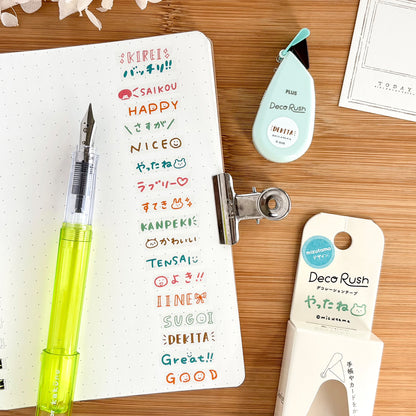 KIREI
バッチリ!!
SAIKOU
HAPPY
さすが
NICE
やったね
ラブリー♡
すてき
KANPEKI
かわいい
TENSAI
よき!!
IINE
SUGOI
DEKITA
Great!!
GOOD
PLUS
Deco Rush
DEKITA
TODAY
mizutama
デザイン
Deco Rush
デコレーションテープ
やったね
©mizutama
手帳やカードを